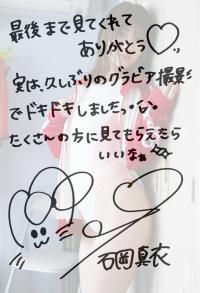 最後まで見てくれて
ありがとう♡
実は、久しぶりのグラビア撮影
でドキドキしましたっ
たくさんの方に見てもらえたら
いいなぁ
石岡真衣